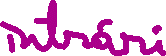 intrări